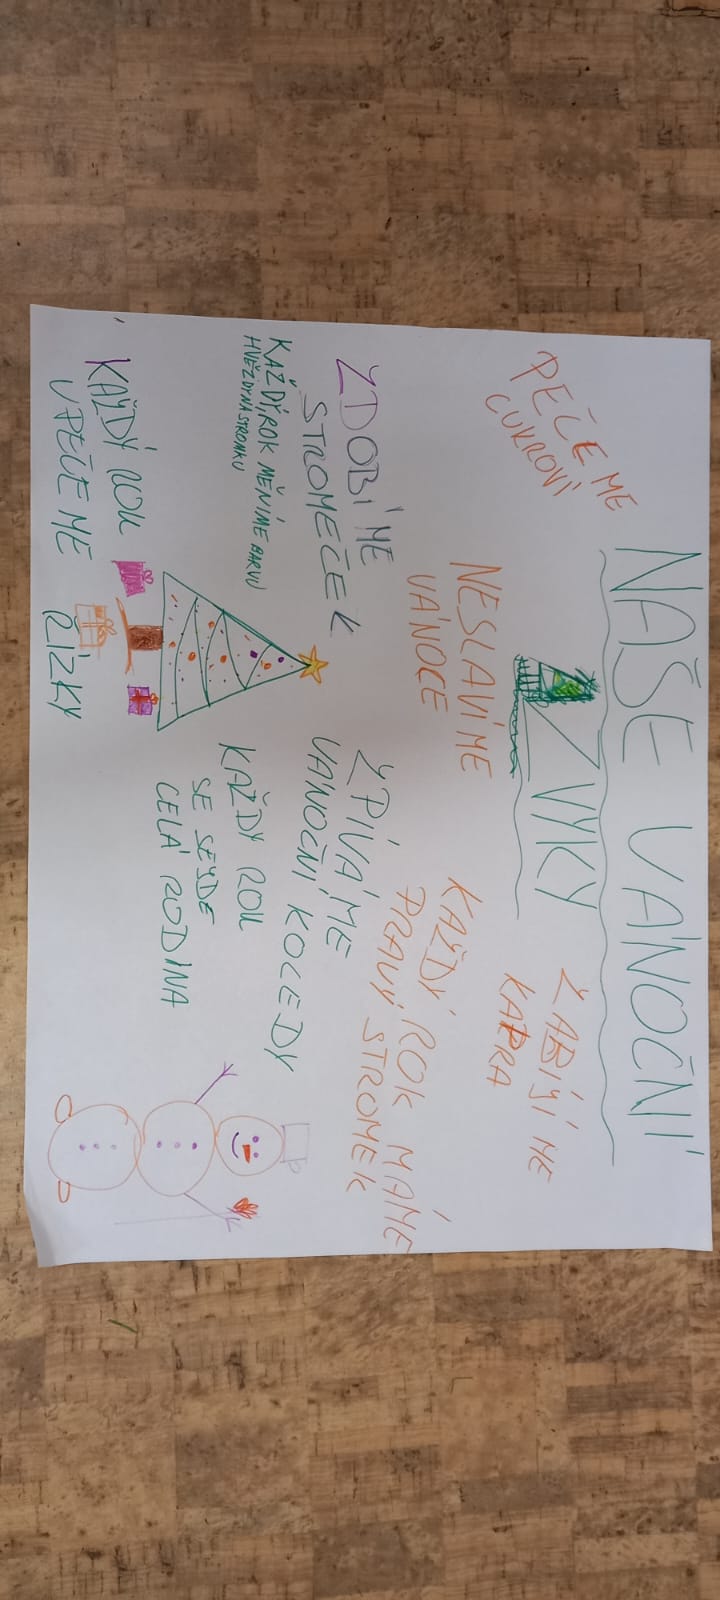 NAŠE VÁNOČNÍ
ZVYKY
PEČEME
CUKROVÍ
NESLAVÍME
VÁNOCE
ZABIJÍME
KAPRA
ZDOBÍME
STROMEČEK
KAŽDÝ ROK MĚNÍME BARVU
HVĚZDY NA STROMKU
KAŽDÝ ROK MÁME
PRAVÝ STROMEK
ZPÍVÁME
VÁNOČNÍ KOLEDY
KAŽDÝ ROK
SE SEJDE
CELÁ RODINA
KAŽDÝ ROK
UPEČEME
ŘÍZKY